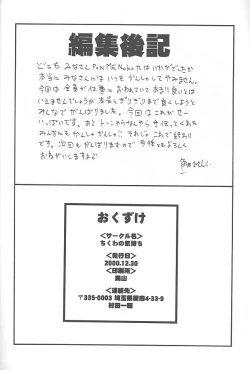 編集後記
どーも みなさん
本当に みなさんには いつも かんしゃして やみません。
今回は 全員が仕事に おわれていて あまり 良いとは
いえませんでしょうが 本当ぎりぎりまで 良くしようと
みんなで がんばりました。 今回は これが せー
いっぱいです。 あと トーンやら なんやら 手伝ってくれた
みんなにも かんしゃ かんしゃ!! それじゃ これで 終わり
です。 次回も がんばりますので 今後とも よろしく
おねがいしますよ
おくずけ
<サークル名>
ちくわの気持ち
<発行日>
2000.12.30
<印刷所>
南山
<連絡先>
〒335-0003 埼玉県蕨市4-33-9
村田一総